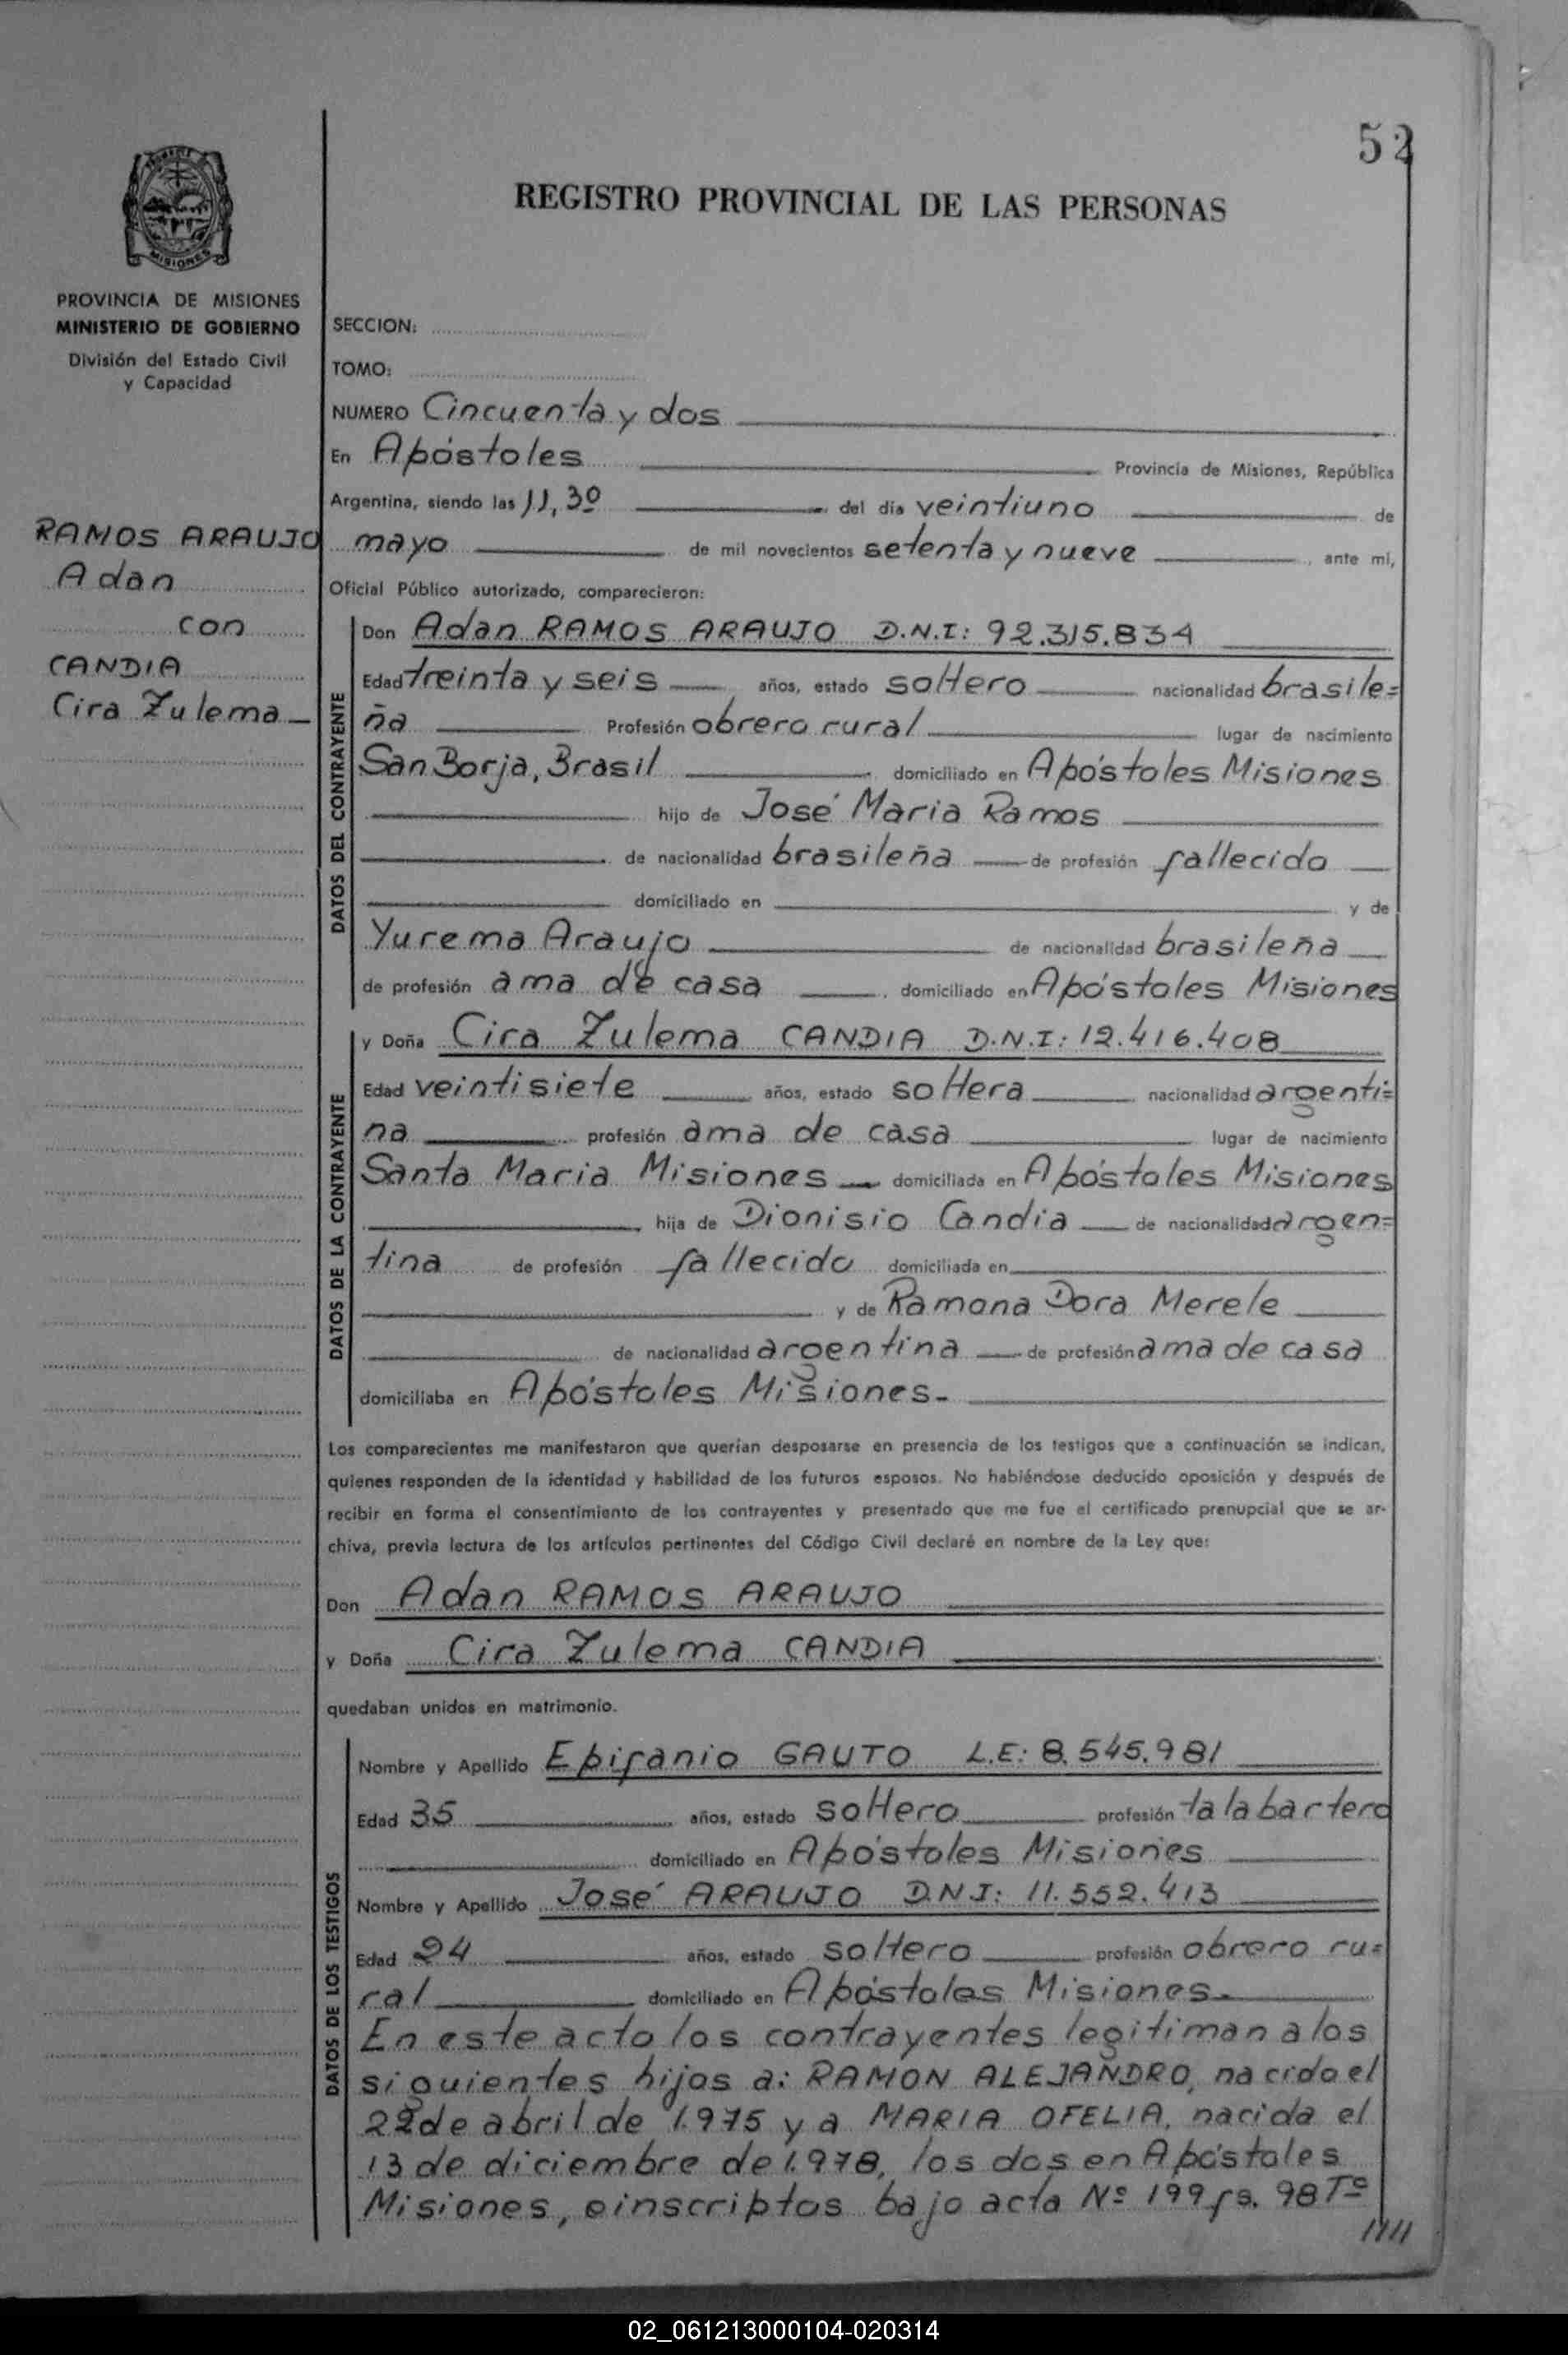 52
REGISTRO PROVINCIAL DE LAS PERSONAS
MISIONES
PROVINCIA DE MISIONES
MINISTERIO DE GOBIERNO
División del Estado Civil
y Capacidad
RAMOS ARAUJO
Adan
con
CANDIA
Cira Zulema
SECCION:
TOMO:
NUMERO Cincuenta y dos
En Apóstoles Provincia de Misiones, República
Argentina, siendo las 11,30 del día veintiuno de
mayo de mil novecientos setenta y nueve, ante mi,
Oficial Público autorizado, comparecieron:
DATOS DEL CONTRAYENTE
Don Adan RAMOS ARAUJO D.N.I: 92.315.834
Edad treinta y seis años, estado soltero nacionalidad brasile=
ña Profesión obrero rural lugar de nacimiento
San Borja, Brasil domiciliado en Apóstoles Misiones
hijo de José Maria Ramos
de nacionalidad brasileña de profesión fallecido
domiciliado en y de
Yurema Araujo de nacionalidad brasileña
de profesión ama de casa domiciliado en Apóstoles Misiones
DATOS DE LA CONTRAYENTE
y Doña Cira Zulema CANDIA D.N.I: 12.416.408
Edad veintisiete años, estado soltera nacionalidad argenti=
na profesión ama de casa lugar de nacimiento
Santa Maria Misiones domiciliada en Apóstoles Misiones
hija de Dionisio Candia de nacionalidad argen=
tina de profesión fallecido domiciliada en
y de Ramona Dora Merele
de nacionalidad argentina de profesión ama de casa
domiciliaba en Apóstoles Misiones.
Los comparecientes me manifestaron que querían desposarse en presencia de los testigos que a continuación se indican,
quienes responden de la identidad y habilidad de los futuros esposos. No habiéndose deducido oposición y después de
recibir en forma el consentimiento de los contrayentes y presentado que me fue el certificado prenupcial que se ar-
chiva, previa lectura de los artículos pertinentes del Código Civil declaré en nombre de la Ley que:
Don Adan RAMOS ARAUJO
y Doña Cira Zulema CANDIA
quedaban unidos en matrimonio.
DATOS DE LOS TESTIGOS
Nombre y Apellido Epifanio GAUTO L.E: 8.545.981
Edad 35 años, estado soltero profesión talabartero
domiciliado en Apóstoles Misiones
Nombre y Apellido José ARAUJO D.N.I: 11.552.413
Edad 24 años, estado soltero profesión obrero ru=
ral domiciliado en Apóstoles Misiones.
En este acto los contrayentes legitiman a los
siguientes hijos a: RAMON ALEJANDRO, nacido el
22 de abril de 1.975 y a MARIA OFELIA, nacida el
13 de diciembre de 1.978, los dos en Apóstoles
Misiones, e inscriptos bajo acta Nº 199 fs. 98 Tº
/////
02_061213000104-020314